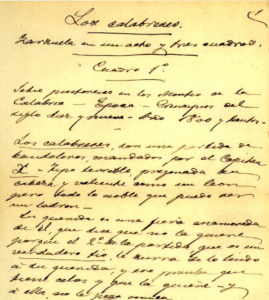 1
Los calabreses.
Zarzuela en un acto y tres cuadros.
Cuadro 1º
Sitio pintoresco en los Montes de la
Calabria — Epoca — Principios del
siglo diez y nueve — Año 1800 y tantos.
Los calabreses, son una partida de
bandoleros, mandados por el Capitán
X – tipo terrible pregonada su
cabeza, y valiente como un leon
pero todo lo noble que puede ser
un ladron —
Su querida es una fiera enamorada
de él, que dice que no la quiere
porque el 2º de la partida que es un
verdadero tio, le
a su querida; y
tiene celos y que la quiere – y
a ella, no le